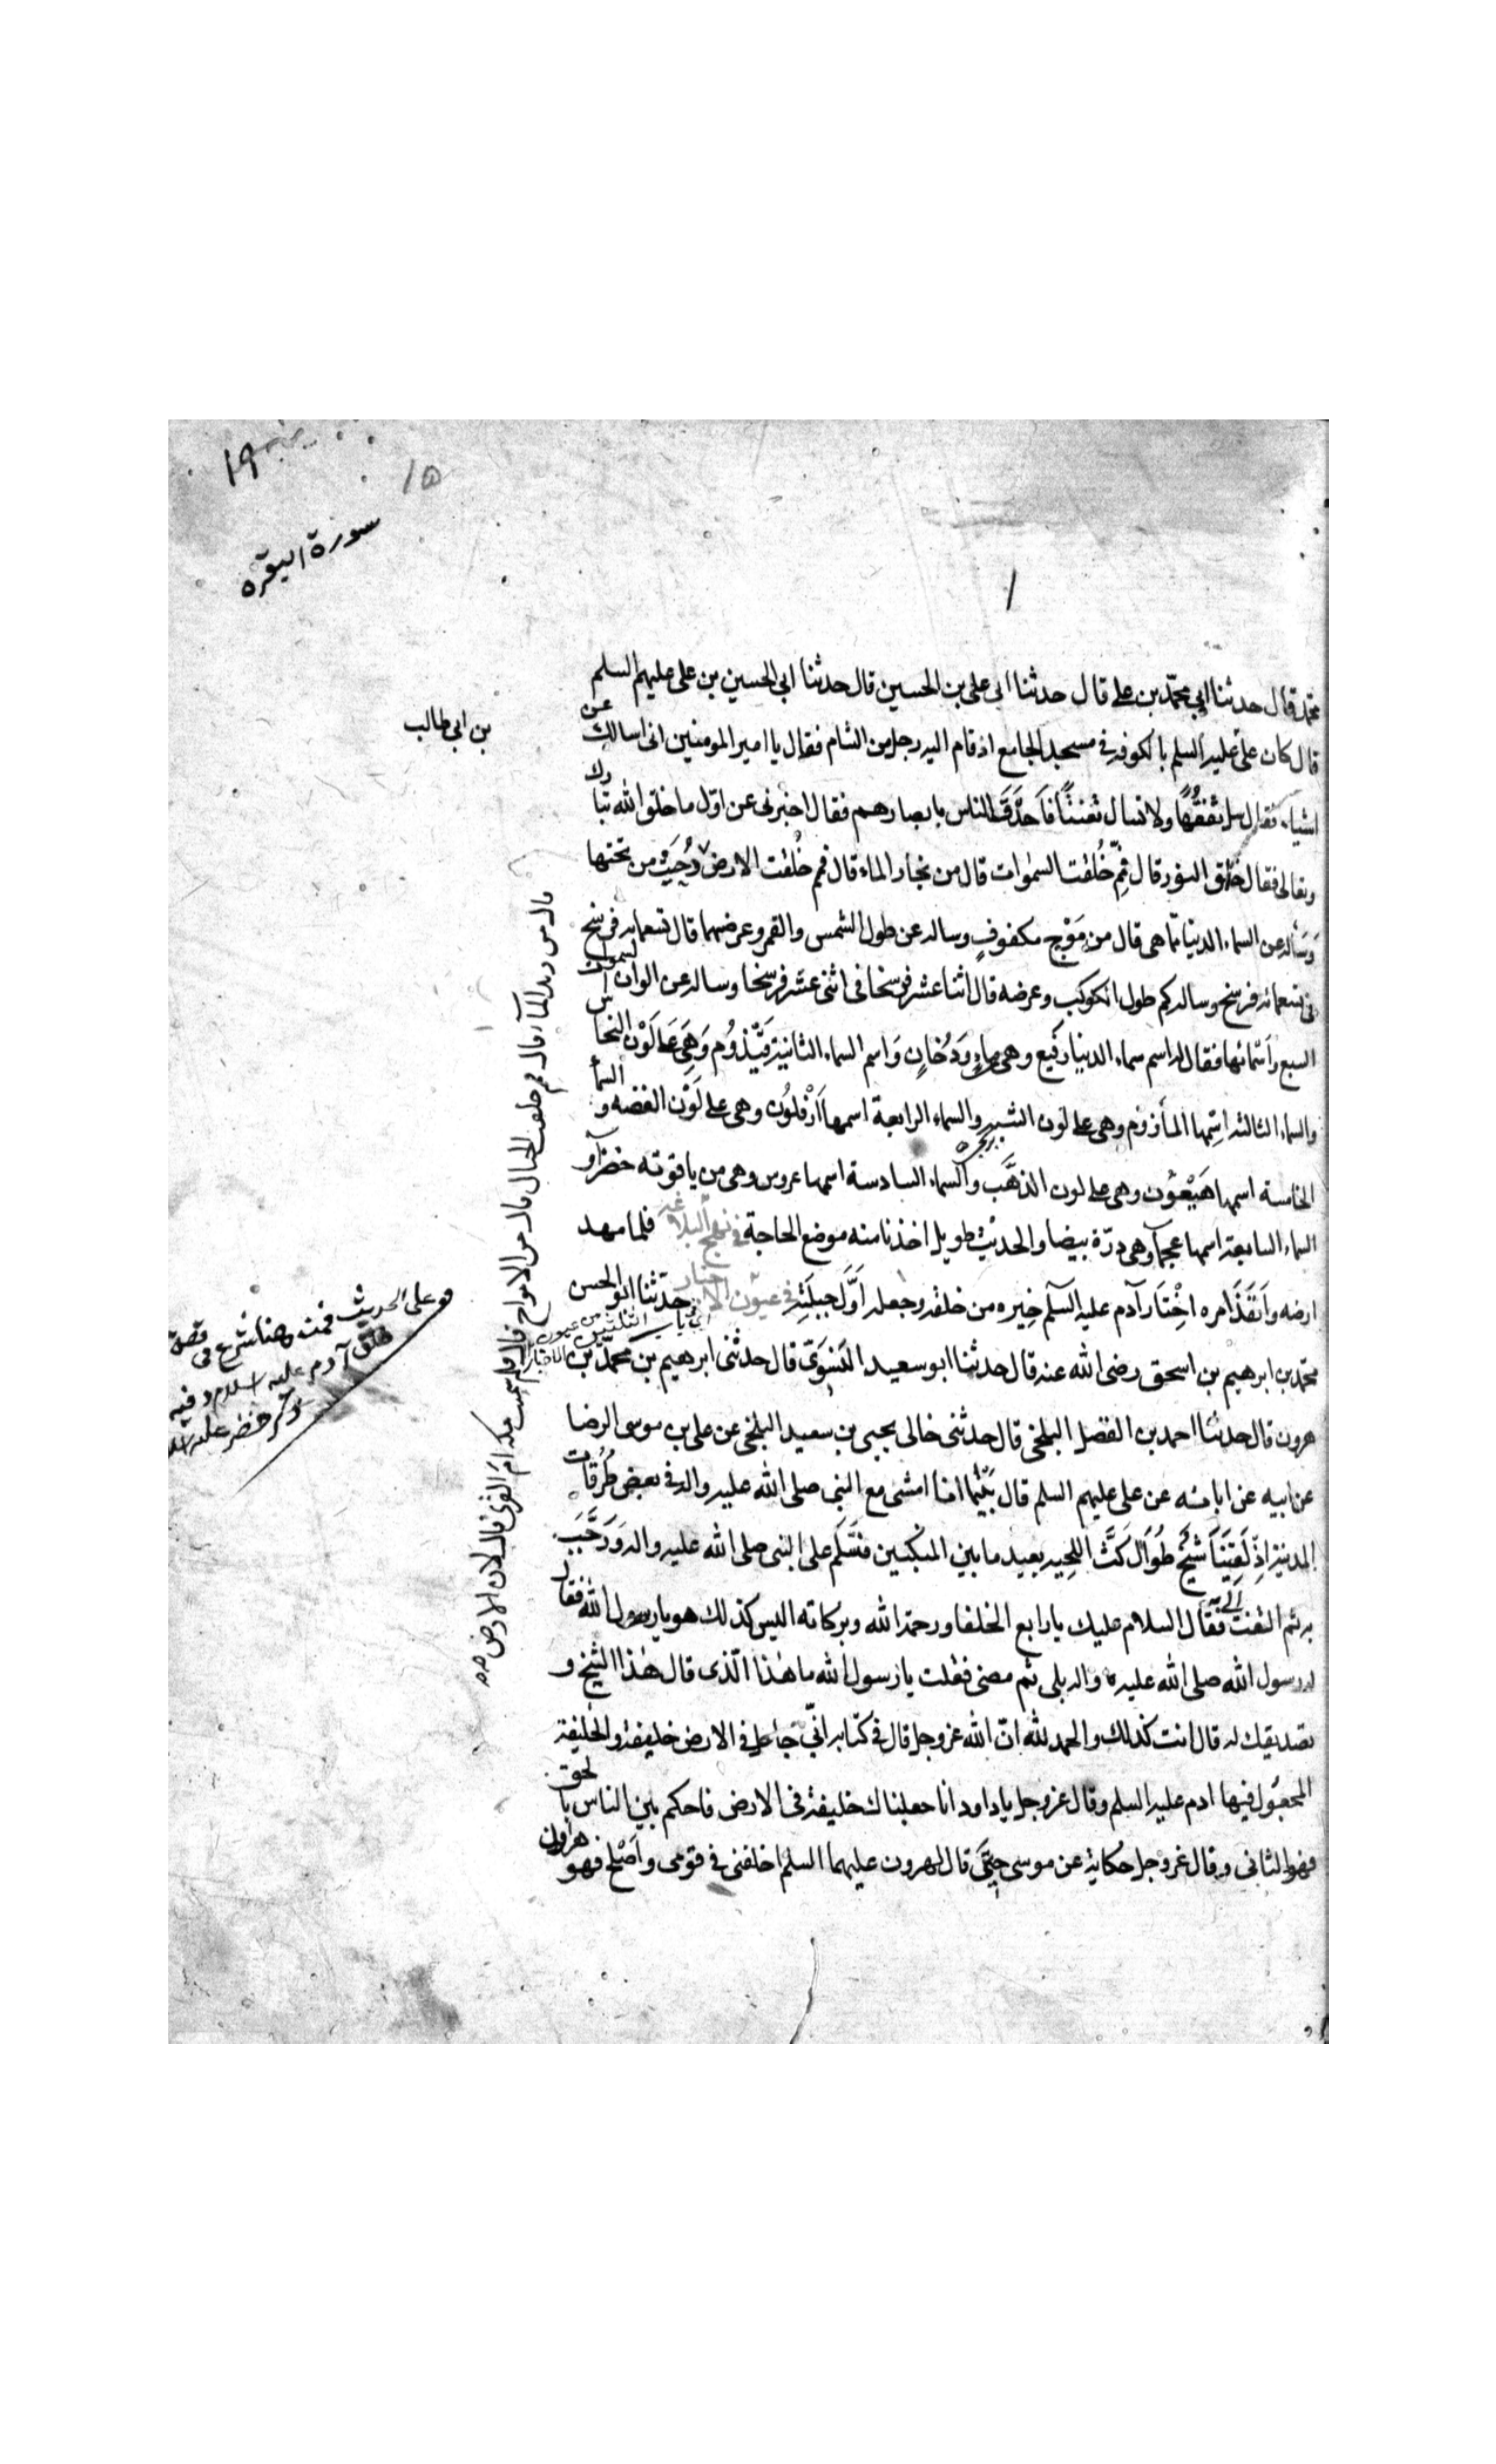 ١٩
١٥
سورة البقره
محمد قال حدثنا ابي محمد بن علي قال حدثنا ابى على بن الحسين قال حدثنا ابي الحسين بن على عليهم السلم
بن ابي طالب
قال كان على عليه السلم بالكوفه في مسجد الجامع اذ قام اليه رجل من الشام فقال يا امير المومنين انى اسالك عن
اشياء فقال سل تفقُّهًا ولا تسال تعنتًا فَاَحدَقَ الناس بابصارهم فقال اخبرنى عن اوّل ما خلق الله تبارك
وتعالى فقال خلق النور قال فمِمّ خُلقت السموات قال من بخار الماء قال فمم خُلقت الارض من تحتها
وَسَأله عن السماء الدنيا ممّا هى قال من مَوْج مكفوفٍ وساله عن طول الشمس والقمر وعرضهما قال تسعمائه فرسخ
فى تسعمائه فرسخ وساله كم طول الكوكب وعرضه قال اثنا عشر فرسخا فى اثنى عشر فرسخا وساله عن الوان السموات
السبع وأسمائها فقال له اسم سماء الدنيا رفيع وهى من ماءٍ وَدُخانٍ وَاسم السماء الثانية قَيْذوُم وَهِىَ عَلى لَوْن النحاس
والسماء الثالثه اسمها المأزوم وهى على لون الشبه والسماء الرابعة اسمها اَرْفلُون وهى على لَوْن الفضه والسماء
الخامسة اسمها هَيْعُون وهى على لون الذهَّب والسماء السادسة اسمها عروس وهى من ياقوته خضرآء و
السماء السابعة اسمها عجمآ وهى درّة بيضا والحديث طويل اخذنا منه موضع الحاجة في نهج البلاغه فلما مهد
ارضه وَاَنفَذَ امره اخْتَارَ آدم عليه السلم خِيره من خلقه وجعله اَوَّلَ جبلَتِه في عيون الاخبار حدّثنا ابو الحسن
محمّد بن ابرهيم بن اسحق رضى الله عنه قال حدثنا ابو سعيد النسَوىّ قال حدثنى ابرهيم بن محمّد بن
هرون قال حدثنا احمد بن الفضل البلخى قال حدثنى خالى يحيى بن سعيد البلخى عن على بن موسى الرضا
عن ابيه عن ابائه عن على عليهم السلم قال بَيْنما انا امشى مع النبى صلى الله عليه واله فى بعض طُرُقات
المدينة اذْ لَقِيَنَا شَيْخ طُوال كَثُّ اللحيه بعيد ما بين المنكبين فسَلّم على النبى صلى الله عليه واله وَرَحَّبَ
به ثم التفت الىّ فقال السلام عليك يا رابع الخلفا ورحمة الله وبركاته اليس كذلك هو يا رسول الله فقال
له رسول الله صلى الله عليه واله بلى ثم مضى فقلت يا رسول الله ما هٰذا الّذى قال هٰذا الشيخ و
تصديقك له قال انت كذلك والحمد لله انّ الله عزوجل قال فى كتابه انّى جاعل فى الارض خليفة والخليفة
المجعُول فيها ادم عليه السلم وقال عزوجل يا داود انا جعلناك خليفة فى الارض فاحكم بين الناس بالحق
فهو الثانى وقال عزوجل حكاية عن موسى حِينَ قال لهرون عليهما السلم اخلفنى فى قومى واَصْلح فهو هرون
من زبد المآء قال فمم خلقت الجبال قال من الامواج قال فلم سميت مكه امّ القرى قال لان الارض
على الحديث هنا شرع فى قصة
خلق آدم عليه السلام وفيه
ذكر خضر عليه